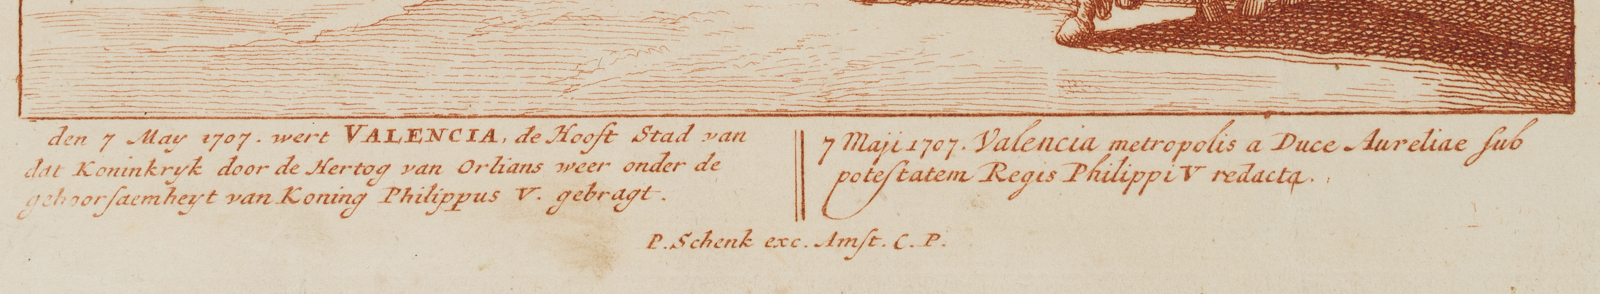 den 7 May 1707. wert VALENCIA, de Hooft Stad van
dat Koninkryk door de Hertog van Orlians weer onder de
gehoorſaemheyt van Koning Philippus V. gebragt.
7 Maji 1707. Valencia metropolis a Duce Aureliae ſub
poteſtatem Regis Philippi V redacta.
P. Schenk exc. Amſt. C. P.